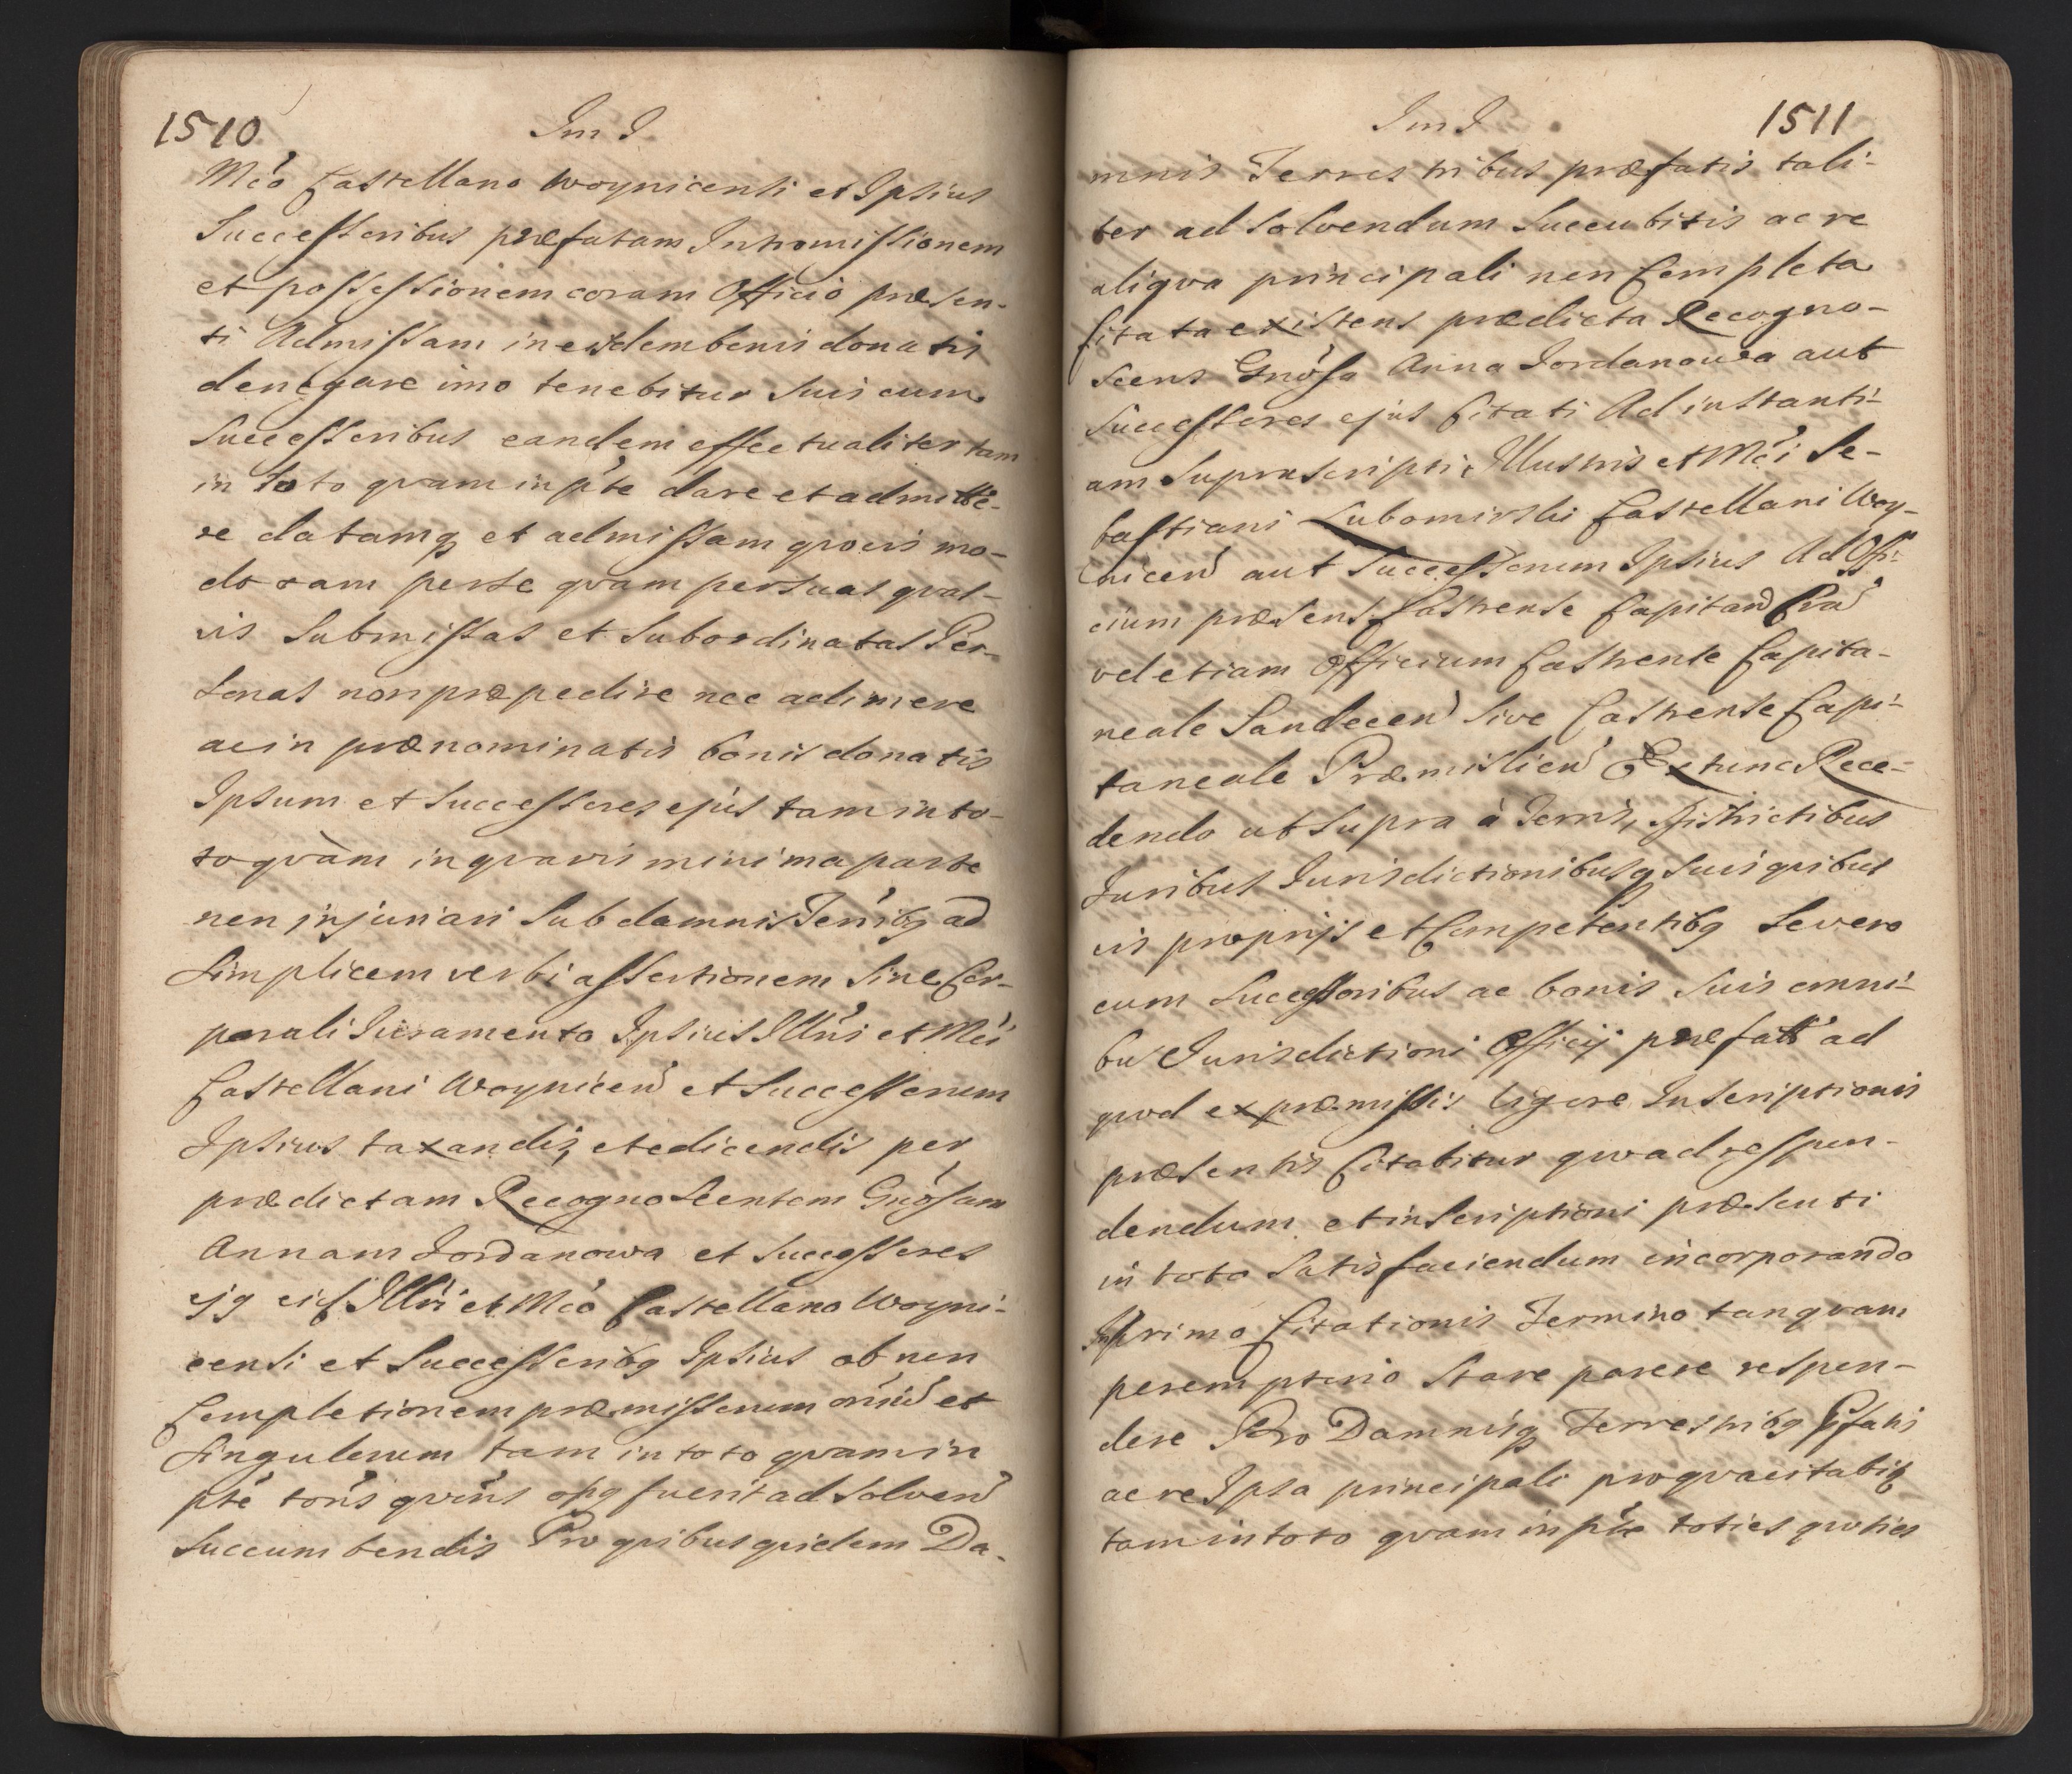 1510
Im J
Mc̃o Castellano Woynicensi et Ipsius
Successoribus præfatam Intromissionem
et possessionem coram Officio præsen-
ti Admissam in eisdem bonis donatis
denegare imo tenebitur suis cum
Successoribus eandem effectualiter tam
in toto qvam in pt̃e dare et admitte-
re datamq et admissam qvovis mo-
do tam per se qvam per suas qvas-
vis Submissas et Subordinatas Per-
sonas non præpedire nec adimere
ac in prænominatis bonis donatis
Ipsum et Successores ejus tam in to-
to qvàm in qvavis minima parte
non injuriari Sub damnis Terribq ad
simplicem verbi assertionem Sine Cor-
porali Juramento Ipsius Illũs et Mc̃i
Castellani Woynicen̄ et Successorum
Ipsius taxandis, et edicendis per
prædictam Recognoscentem Gnõsam
Annam Jordanowa et Successores
ejq eid Illri et Mc̃o Castellano Woyni-
censi et Successoribq Ipsius ob non
Completionem præmissorum omniū et
Singulorum tam in toto qvam in
pt̃e toñs qvoñs opq fuerit ad Solven̄
Succumbendis Pro qvibus qvidem Da-
Im J
1511
mnis Terrestribus præfatis tali-
ter ad Solvendum Succubitis ac re
aliqva principali non Completa
Citata existens prædicta Recogno-
scens Gnõsa Anna Jordanowa aut
Successores ejus Citati Ad instanti-
am Suprascripti Illustris et Mc̃i Se-
bastiani Lubomirski Castellani Woy-
nicen̄ aut Successorum Ipsius Ad Offi-
cium præsens Castrense Capitan̄ Cra̅
vel etiam Officium Castrense Capita-
neale Sandecen̄ Sive Castrense Capi-
taneale Præmislien̄ Extunc Rece-
dendo ut Supra à Terris, Districtibus
Juribus Jurisdictionibusq Suis qvibus
vis proprijs et Competentibq Se vero
cum Successoribus ac bonis Suis omni-
bus Jurisdictioni Officij præfatt̃ ad
qvod ex præmissis vigore Inscriptionis
præsentis Citabitur qvo ad respon-
dendum et inscriptioni præsenti
in toto Satisfaciendum incorporando
In primo Citationis Termino tanqvam
peremptorio Stare parere respon-
dere Pro Damnisq Terrestribq Pfatis
ac re Ipsa principali pro qva citabit
tam in toto qvam in pt̃e toties qvoties